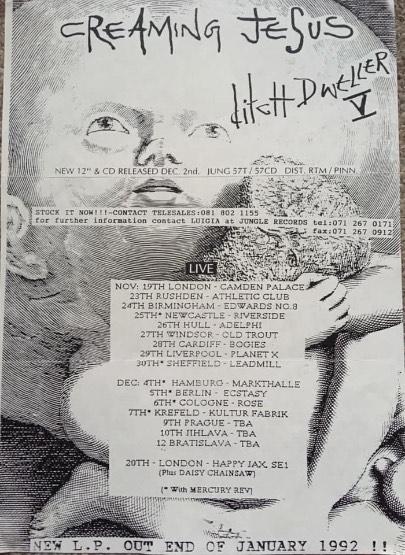 CREAMING JESUS
ditcH DWELLER
V
NEW 12" & CD RELEASED DEC. 2nd. JUNG 57T / 57CD DIST. RTM / PINN.
STOCK IT NOW!!!-CONTACT TELESALES:081 802 1155
for further information contact LUIGIA at JUNGLE RECORDS tel:071 267 0171
fax:071 267 0912
LIVE
NOV: 19TH LONDON - CAMDEN PALACE
23TH RUSHDEN - ATHLETIC CLUB
24TH BIRMINGHAM - EDWARDS NO.8
25TH* NEWCASTLE - RIVERSIDE
26TH HULL - ADELPHI
27TH WINDSOR - OLD TROUT
28TH CARDIFF - BOGIES
29TH LIVERPOOL - PLANET X
30TH* SHEFFIELD - LEADMILL
DEC: 4TH* HAMBURG - MARKTHALLE
5TH* BERLIN - ECSTASY
6TH* COLOGNE - ROSE
7TH* KREFELD - KULTUR FABRIK
9TH PRAGUE - TBA
10TH JIHLAVA - TBA
12 BRATISLAVA - TBA
20TH - LONDON - HAPPY JAX, SE1
(Plus DAISY CHAINSAW)
(* With MERCURY REV)
NEW L.P. OUT END OF JANUARY 1992 !!